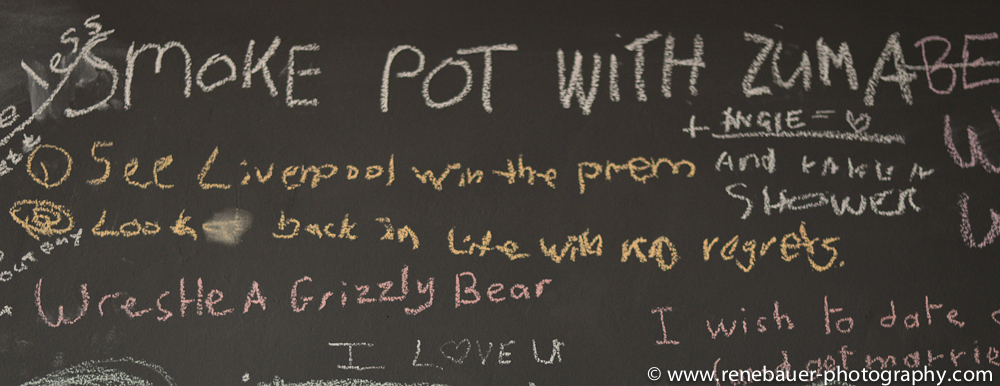 yess
SMOKE POT WITH ZUMA BE
+ ANGIE = ♡
AND TAKE A
SHOWER
① See Liverpool win the prem
② Look back in life with no regrets.
WrestLe A Grizzly Bear
I wish to date
(and get marrie
I L♡VE U
© www.renebauer-photography.com